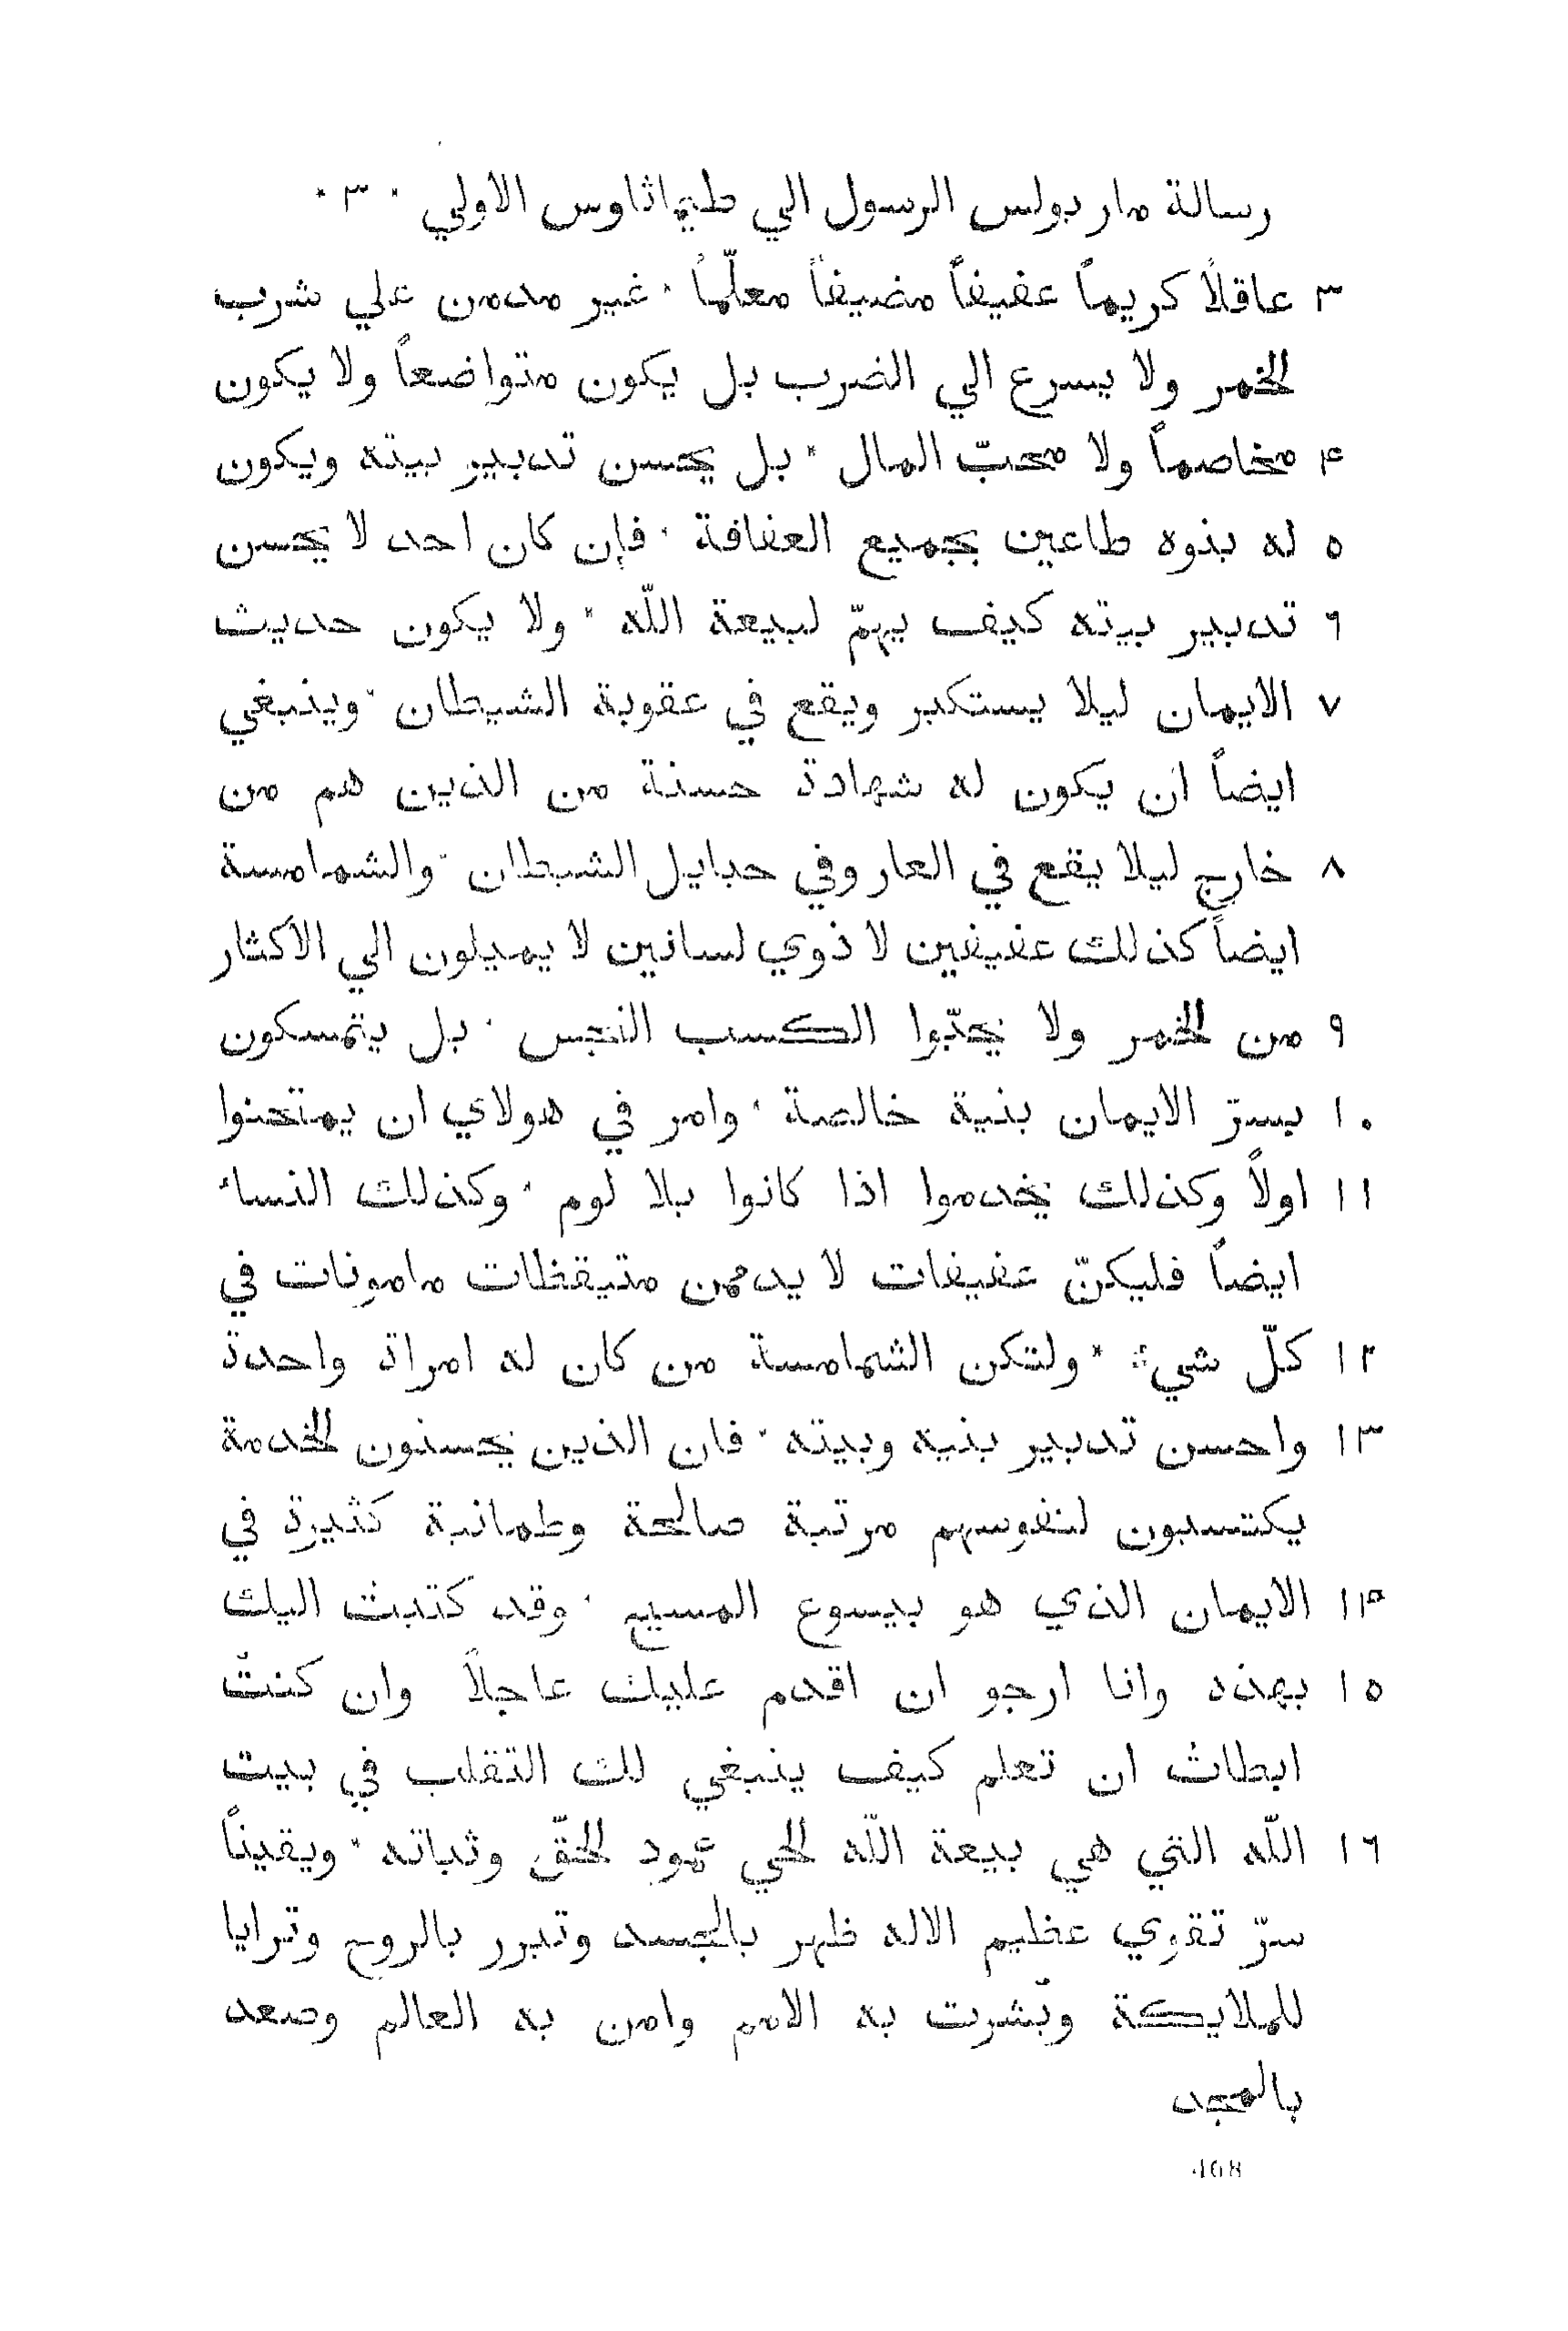 رسالة مار بولس الرسول الي طيماثاوس الاولي * ٣ *
٣ عاقلاً كريماً عفيفاً مضيفاً معلّماً * غير مدمن علي شرب
الخمر ولا يسرع الي الضرب بل يكون متواضعاً ولا يكون
۴ مخاصماً ولا محبّ المال * بل يحسن تدبير بيته ويكون
٥ له بنوه طاعين بجميع العفافة * فإن كان احد لا يحسن
٦ تدبير بيته كيف يهمّ لبيعة اللّه * ولا يكون حديث
٧ الايمان ليلا يستكبر ويقع في عقوبة الشيطان * وينبغي
ايضاً ان يكون له شهادة حسنة من الذين هم من
٨ خارج ليلا يقع في العار وفي حبايل الشيطان * والشمامسة
ايضاً كذلك عفيفين لا ذوي لسانين لا يميلون الي الاكثار
٩ من الخمر ولا يحبّوا الكسب النجس * بل يتمسكون
١٠ بسرّ الايمان بنية خالصة * وامر في هولاي ان يمتحنوا
١١ اولاً وكذلك يخدموا اذا كانوا بلا لوم * وكذلك النساء
ايضاً فليكنّ عفيفات لا يدممن متيقظات مامونات في
١٢ كلّ شيء * ولتكن الشمامسة من كان له امراة واحدة
١٣ واحسن تدبير بنيه وبيته * فان الذين يحسنون الخدمة
يكتسبون لنفوسهم مرتبة صالحة وطمانية كثيرة في
١۴ الايمان الذي هو بيسوع المسيح * وقد كتبت اليك
١٥ بهذه وانا ارجو ان اقدم عليك عاجلاً وان كنت
ابطات ان تعلم كيف ينبغي لك التقلب في بيت
١٦ اللّه التي هي بيعة اللّه الحي عمود الحقّ وثباته * ويقيناً
سرّ تقوي عظيم الاله ظهر بالجسد وتبرر بالروح وترايا
للملايكة وبشرت به الامم وامن به العالم وصعد
بالمجد
468